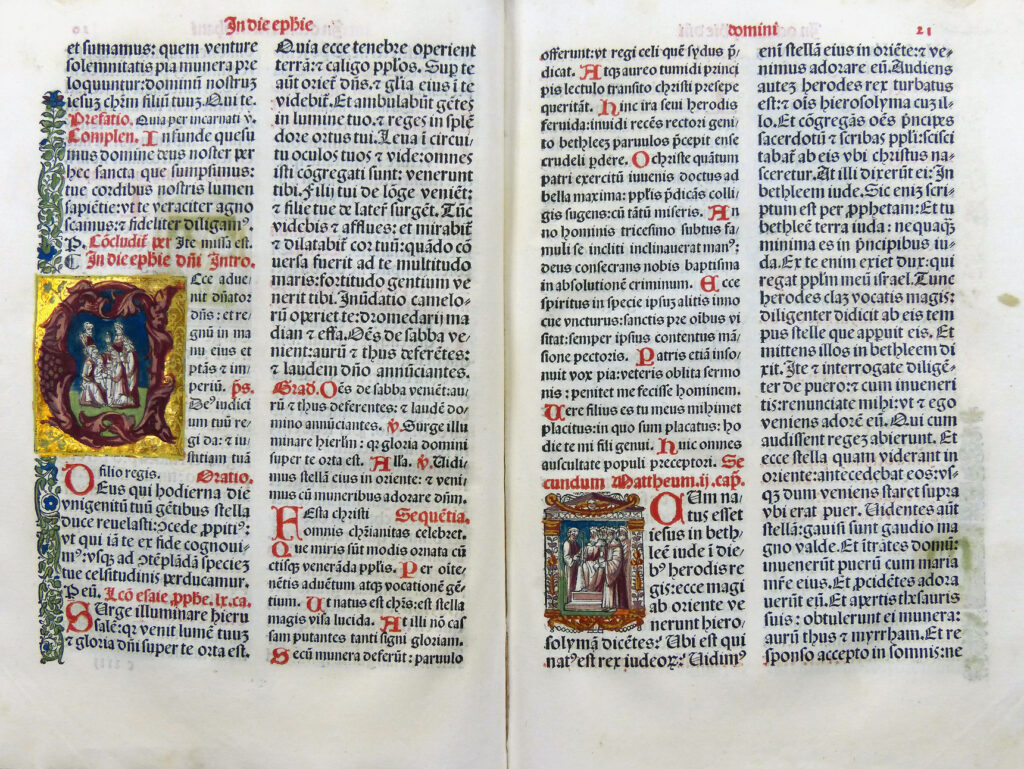 In die ephie
et sumamus: quem venture
solemnitatis pia munera pre
loquuntur: dominū nostruȝ
iesuȝ chr̄m filiū tuuȝ. Qui te.
Prefatio. Quia per incarnati v̄.
Complen. Infunde quesu
mus domine deus noster per
hec sancta que sumpsimus:
tue cordibus nostris lumen
sapiētie: vt te veraciter agno
scamus: ⁊ fideliter diligamꝰ.
P. Cōcludit̄ per Ite missa est.
In die ephie dn̄i Intro.
Ecce adue
nit dn̄ator
dn̄s: et re
gnū in ma
nu eius et
ptās ⁊ im
periū. ps.
Deꝰ iudici
um tuū re
gi da: ⁊ iu
stitiam tuā
filio regis. Oratio.
DEus qui hodierna die
vnigenitū tuū gētibus stella
duce reuelasti: ↄcede ꝓpitiꝰ:
vt qui iā te ex fide cognoui
mꝰ: vsqȝ ad ↄtēplādā specieȝ
tue celsitudinis perducamur.
Peū. Lcō esaie ꝓphe. lx. ca.
SUrge illuminare hieru
salē: qr venit lumē tuuȝ
⁊ gloria dn̄i super te orta est.
Quia ecce tenebre operient
terrā: ⁊ caligo pplōs. Suꝑ te
aūt oriet̄ dn̄s: ⁊ glia eius ī te
videbit̄. Et ambulabūt gētes
in lumine tuo: ⁊ reges in splē
dore ortus tui. Leua ī circui
tu oculos tuos ⁊ vide: omnes
isti cōgregati sunt: venerunt
tibi. Filii tui de lōge veniēt:
⁊ filie tue de later̄ surgēt. Tūc
videbis ⁊ afflues: et mirabit̄
⁊ dilatabit̄ cor tuū: quādo cō
versa fuerit ad te multitudo
maris: fortitudo gentium ve
nerit tibi. Inūdatio camelo
rū operiet te: dromedarij ma
dian ⁊ effa. Oēs de sabba ve
nient: aurū ⁊ thus deferētes:
⁊ laudem dn̄o annūciantes.
Grad. Oēs de sabba veniēt: au
rū ⁊ thus deferentes: ⁊ laudē do
mino annūciantes. v̄. Surge illu
minare hierlm̄: qr gloria domini
super te orta est. Alla. v̄. Uidi
mus stellā eius in oriente: ⁊ veni
mus cū muneribus adorare dn̄m.
FEsta christi Sequētia.
omnis chr̄ianitas celebret.
Que miris sūt modis ornata cū
ctisqȝ venerāda pplīs. Per oīte
nētis aduētum atqȝ vocationē gē
tium. Ut natus est chr̄s: est stella
magis visa lucida. At illi nō cas
sam putantes tanti signi gloriam.
Secū munera deferūt: paruulo
domini 21
offerunt: vt regi celi quē sydus p̄
dicat. Atqȝ aureo tumidi princi
pis lectulo transito christi presepe
queritāt. Hinc ira seui herodis
feruida: inuidi recēs rectori geni
to bethleeȝ paruulos precepit ense
crudeli pdere. O christe quātum
patri exercitū iuuenis doctus ad
bella maxima: pplīs p̄dicās colli
gis sugens: cū tātū miseris. An
no hominis tricesimo subtus fa
muli se incliti inclinauerat manꝰ:
deus consecrans nobis baptisma
in absolutionē criminum. Ecce
spiritus in specie ipsuȝ alitis inno
cue vncturus: sanctis pre oībus vi
sitat: semper ipsius contentus mā
sione pectoris. Patris etiā inso
nuit vox pia: veteris oblita sermo
nis: penitet me fecisse hominem.
Uere filius es tu meus mihimet
placitus: in quo sum placatus: ho
die te mi fili genui. Huic omnes
auscultate populi preceptori. Se
cundum Mattheum. ij. cap.
CUm na
tus esset
iesus in beth
leē iude ī die
bꝰ herodis re
gis: ecce magi
ab oriente ve
nerunt hiero
solymā dicētes: Ubi est qui
natꝰ est rex iudeoꝝ: Uidimꝰ
eni stellā eius in oriēte: ⁊ ve
nimus adorare eū. Audiens
auteȝ herodes rex turbatus
est: ⁊ oīs hierosolyma cuȝ il
lo. Et cōgregās oēs p̄ncipes
sacerdotū ⁊ scribas pplī: scisci
tabat̄ ab eis vbi christus na
sceretur. At illi dixerūt ei: In
bethleem iude. Sic enīȝ scri
ptum est per ꝓphetam: Et tu
bethleē terra iuda: nequaqȝ
minima es in p̄ncipibus iu
da. Ex te enim exiet dux: qui
regat pplm̄ meū israel. Tunc
herodes claȝ vocatis magis:
diligenter didicit ab eis tem
pus stelle que appuit eis. Et
mittens illos in bethleem di
xit. Ite ⁊ interrogate diligē
ter de puero: ⁊ cum inueneri
tis: renunciate mihi: vt ⁊ ego
veniens adorem eū. Qui cum
audissent regeȝ abierunt. Et
ecce stella quam viderant in
oriente: antecedebat eos: vs
qȝ dum veniens staret supra
vbi erat puer. Uidentes aūt
stellā: gauisi sunt gaudio ma
gno valde. Et ītrātes domū:
inuenerūt puerū cum maria
mr̄e eius. Et ꝓcidētes adora
uerūt eū. Et apertis thesauris
suis: obtulerunt ei munera:
aurū thus ⁊ myrrham. Et re
sponso accepto in somnis: ne